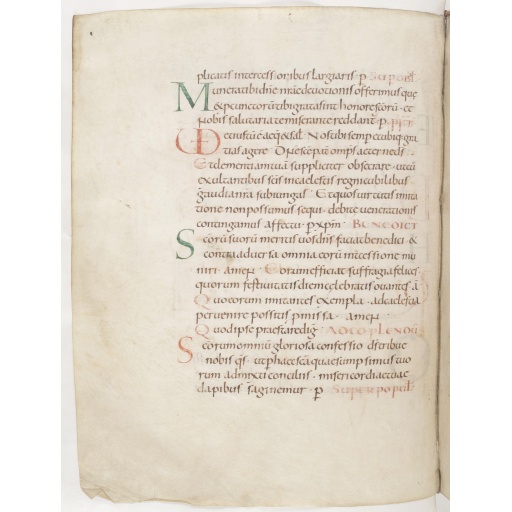 plicatis intercessoribus largiaris p Sup obl
Munera tibi dne nrae devotionis offerimus quę
& pro cunctorū tibi grata sint honore scōrū · et
nobis salutaria te miserante reddant p
VD e iustū ē aeq & sal Nos tibi semp et ubiq gra
tias agere Dne scē pat omps aeterne ds
Et clementiam tuā suppliciter obsecrare · ut cū
exultantibus scis in caelestis regni cubilibus
gaudia nra subiungas Et quos virtutis imita
tione non possumus sequi · debitę venerationis
contingamus affectu · p xpm BENEDICT
Scorū suorū meritis vos dns faciat benedici &
contra adversa omnia eorū intercessione mu
niri · amen Eorum efficiat suffragia felices
quorum festivitatis diem celebratis ovantes · ā
Quo eorum imitantes exempla · ad caelestia
pervenire possitis pmissa · amen
Quod ipse praestare dig AD COPLENDU
Scorum omniū gloriosa confessio ds tribue
nobis qs · ut p haec scā quae sumpsimus tuo
rum admixti conciliis · misericordiae tuae
dapibus saginemur · p Super popul